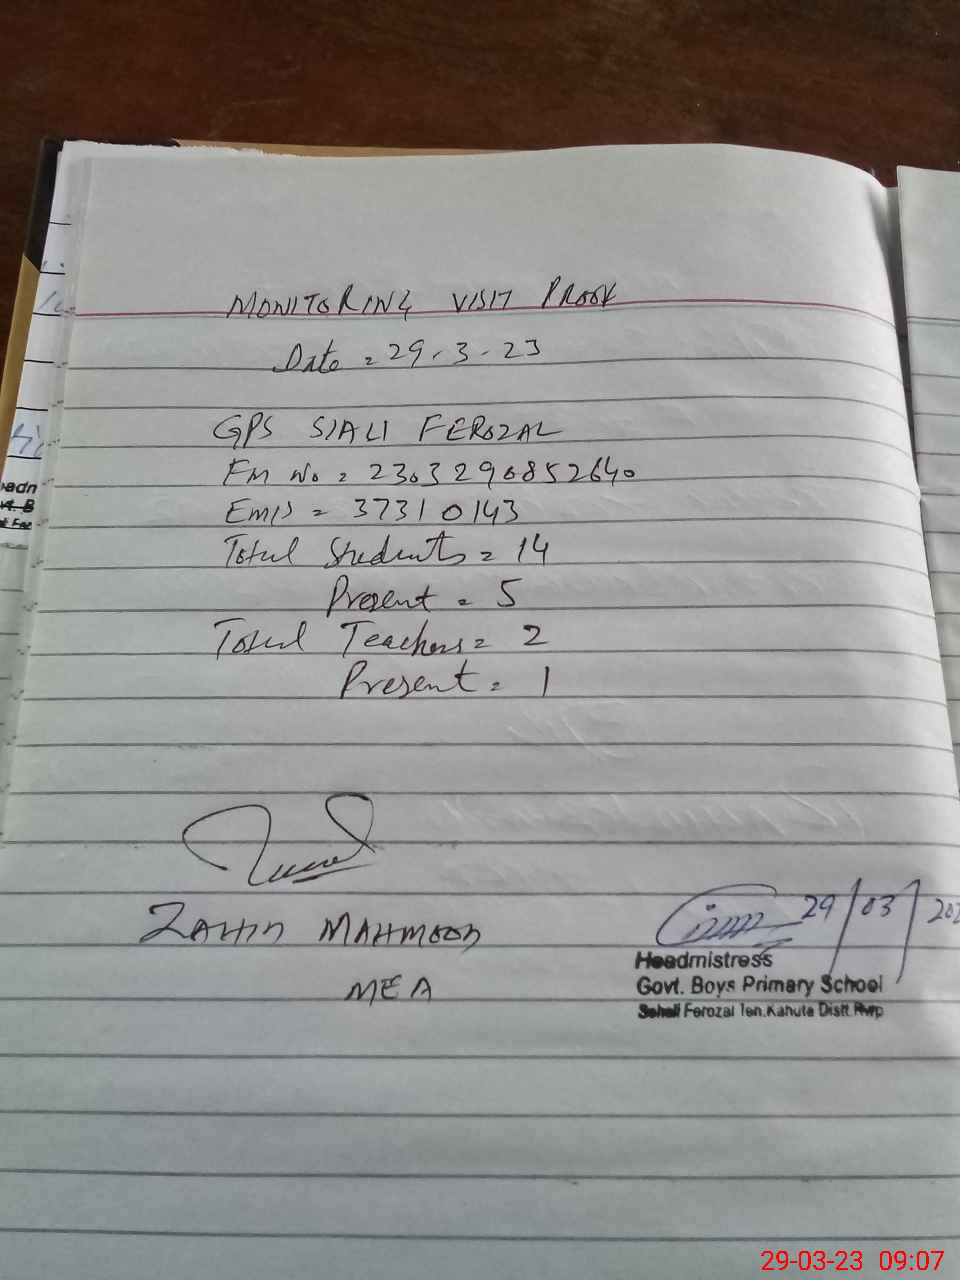 MONITORING VISIT PROOF
Date = 29.3.23
GPS SIALI FEROZAL
FM No = 2303290852640
Emis = 37310143
Total Students = 14
Present = 5
Total Teachers = 2
Present = 1
ZAHID MAHMOOD
MEA
29/03/202
Headmistress
Govt. Boys Primary School
Sehali Ferozal Teh.Kahuta Distt.Rwp
29-03-23 09:07